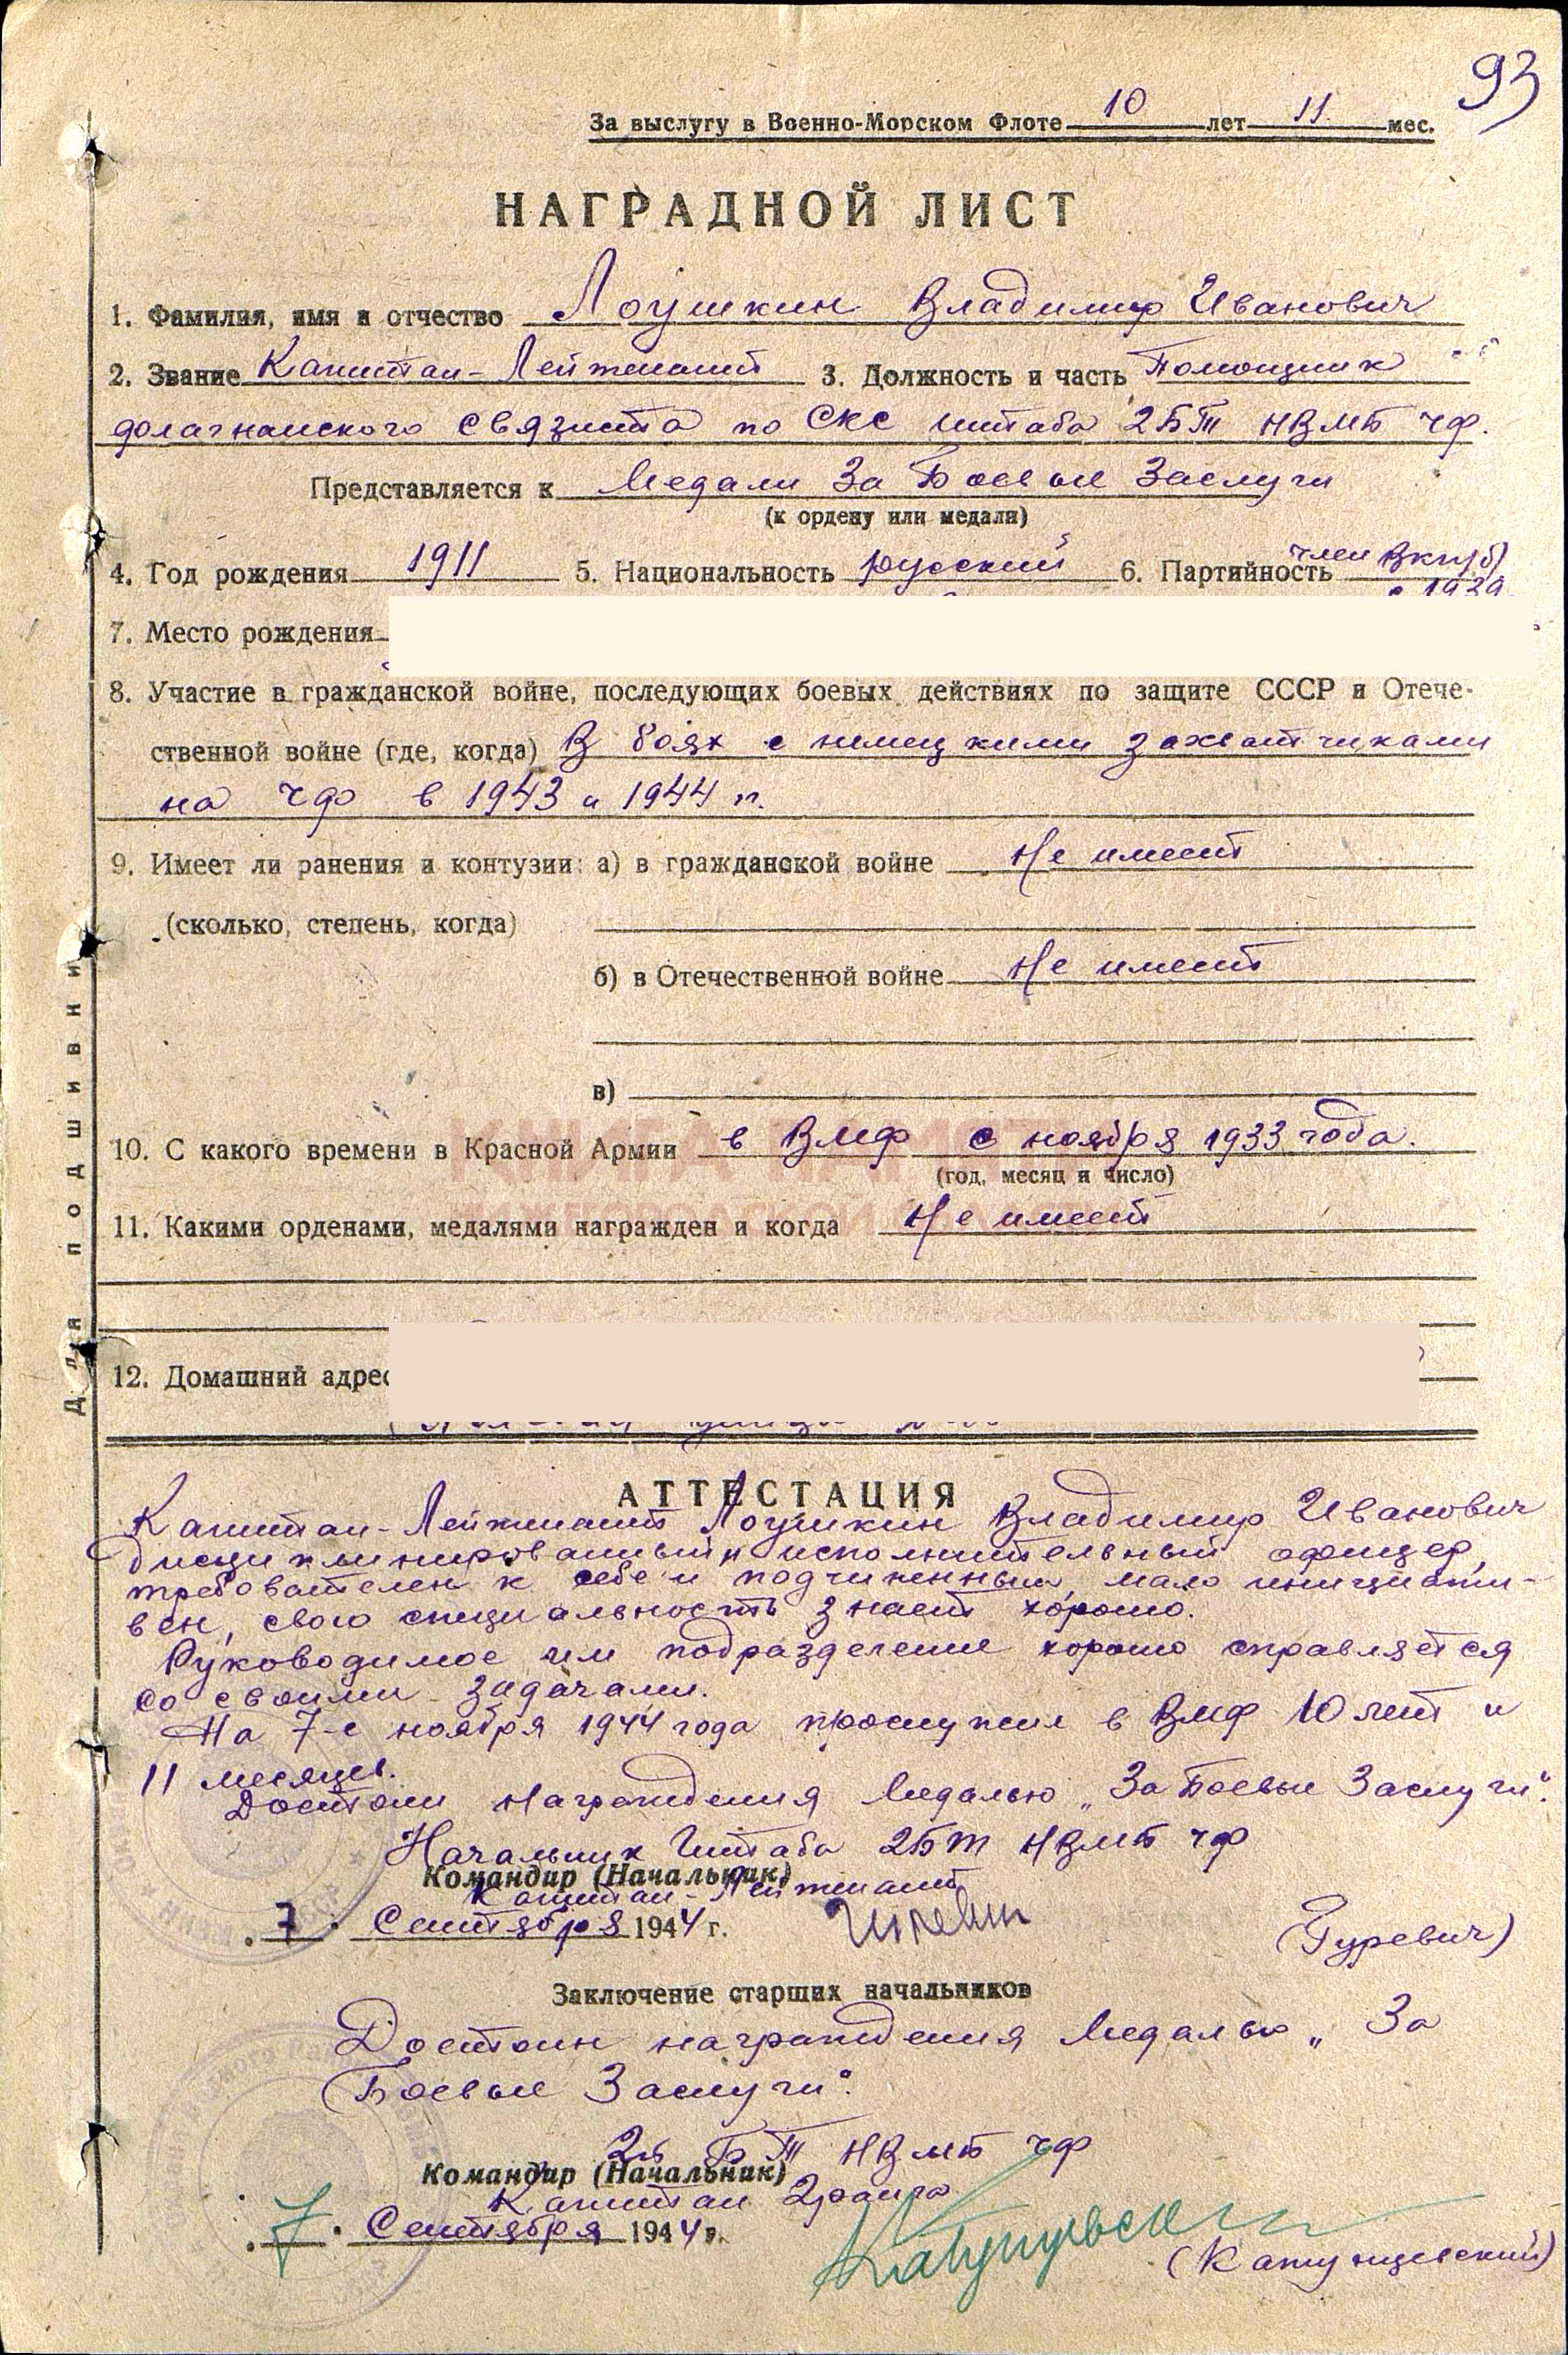 93
За выслугу в Военно-Морском Флоте 10 лет 11 мес.
НАГРАДНОЙ ЛИСТ
1. Фамилия, имя и отчество Лоушкин Владимир Иванович
2. Звание Капитан-Лейтенант 3. Должность и часть Помощник
флагманского связиста по СКС штаба 2БТЩ НВМБ ЧФ.
Представляется к Медали За Боевые Заслуги
(к ордену или медали)
4. Год рождения 1911 5. Национальность русский 6. Партийность член ВКП(б)
с 1939
7. Место рождения
8. Участие в гражданской войне, последующих боевых действиях по защите СССР и Отече-
ственной войне (где, когда) В боях с немецкими захватчиками
на ЧФ в 1943 и 1944 гг.
9. Имеет ли ранения и контузии: а) в гражданской войне Не имеет
(сколько, степень, когда)
б) в Отечественной войне Не имеет
в)
10. С какого времени в Красной Армии в ВМФ с ноября 1933 года.
(год, месяц и число)
11. Какими орденами, медалями награжден и когда Не имеет
12. Домашний адрес
Для подшивки
АТТЕСТАЦИЯ
Капитан-Лейтенант Лоушкин Владимир Иванович
дисциплинированный и исполнительный офицер,
требователен к себе и подчиненным, мало инициати-
вен, свою специальность знает хорошо.
Руководимое им подразделение хорошо справляется
со своими задачами.
На 7-е ноября 1944 года прослужил в ВМФ 10 лет и
11 месяцев.
Достоин награждения Медалью „За Боевые Заслуги".
Начальник Штаба 2БТЩ НВМБ ЧФ
Командир (Начальник)
Капитан-Лейтенант
7 Сентября 1944 г.
(Гуревич)
Заключение старших начальников
Достоин награждения Медалью „За
Боевые Заслуги".
БТЩ НВМБ ЧФ
Командир (Начальник)
Капитан 2 ранга
7 Сентября 1944 г.